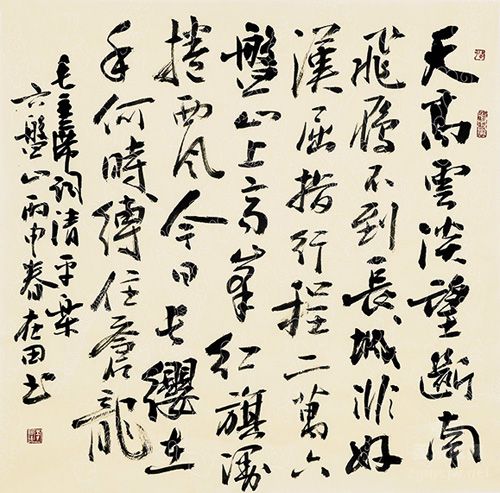 天高雲淡望斷南
飛鴈不到長城非好
漢屈指行程二萬六
盤山上高峯紅旗漫
捲西風今日长纓在
手何時縛住蒼龍
毛主席詞清平樂
六盤山丙申春在田书